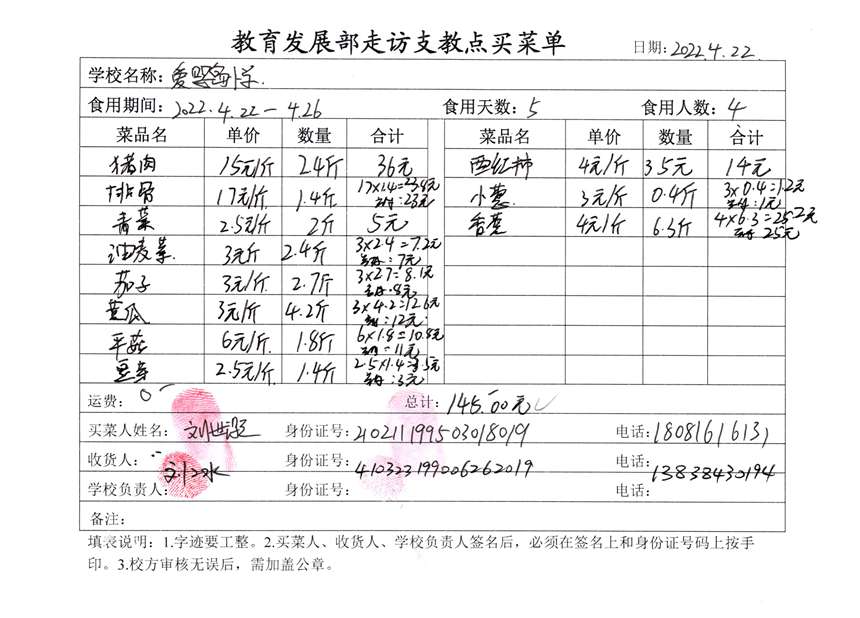 教育发展部走访支教点买菜单
日期:2022.4.22.
学校名称:
食用期间:2022.4.22一4.26 食用天数:5 食用人数:4
菜品名 单价 数量 合计 菜品名 单价 数量 合计
猪肉 15元/斤 2.4斤 36元 西红柿 4元/斤 3.5元 14元
排骨 17元/斤 1.4斤 17×1.4=23.8元 :23元 小葱 3元/斤 0.4斤 3×0.4=1.2元 :1元
青菜 2.5元/斤 2斤 5元 4元/斤 6.3斤 4×6.3=25.2元 25元
油麦菜 3元斤 2.4斤 3×2.4=7.2元 :7元
茄子 3元/斤 2.7斤 3×2.7=8.1元 :8元
黄瓜 3元/斤 4.2斤 3×4.2=12.6元 :12元
平菇 6元/斤 1.8斤 6×1.8=10.8元 =11元
豆芽 2.5元/斤 1.4斤 2.5×1.4=3.5元 :3元
运费: 0 总计:145.00元
买菜人姓名: 身份证号:210211199503018019 电话:18081616131
收货人: 身份证号:410323199006262019 电话:13838430194
学校负责人: 身份证号: 电话:
备注:
填表说明:1.字迹要工整。2.买菜人、收货人、学校负责人签名后,必须在签名上和身份证号码上按手
印。3.校方审核无误后,需加盖公章。